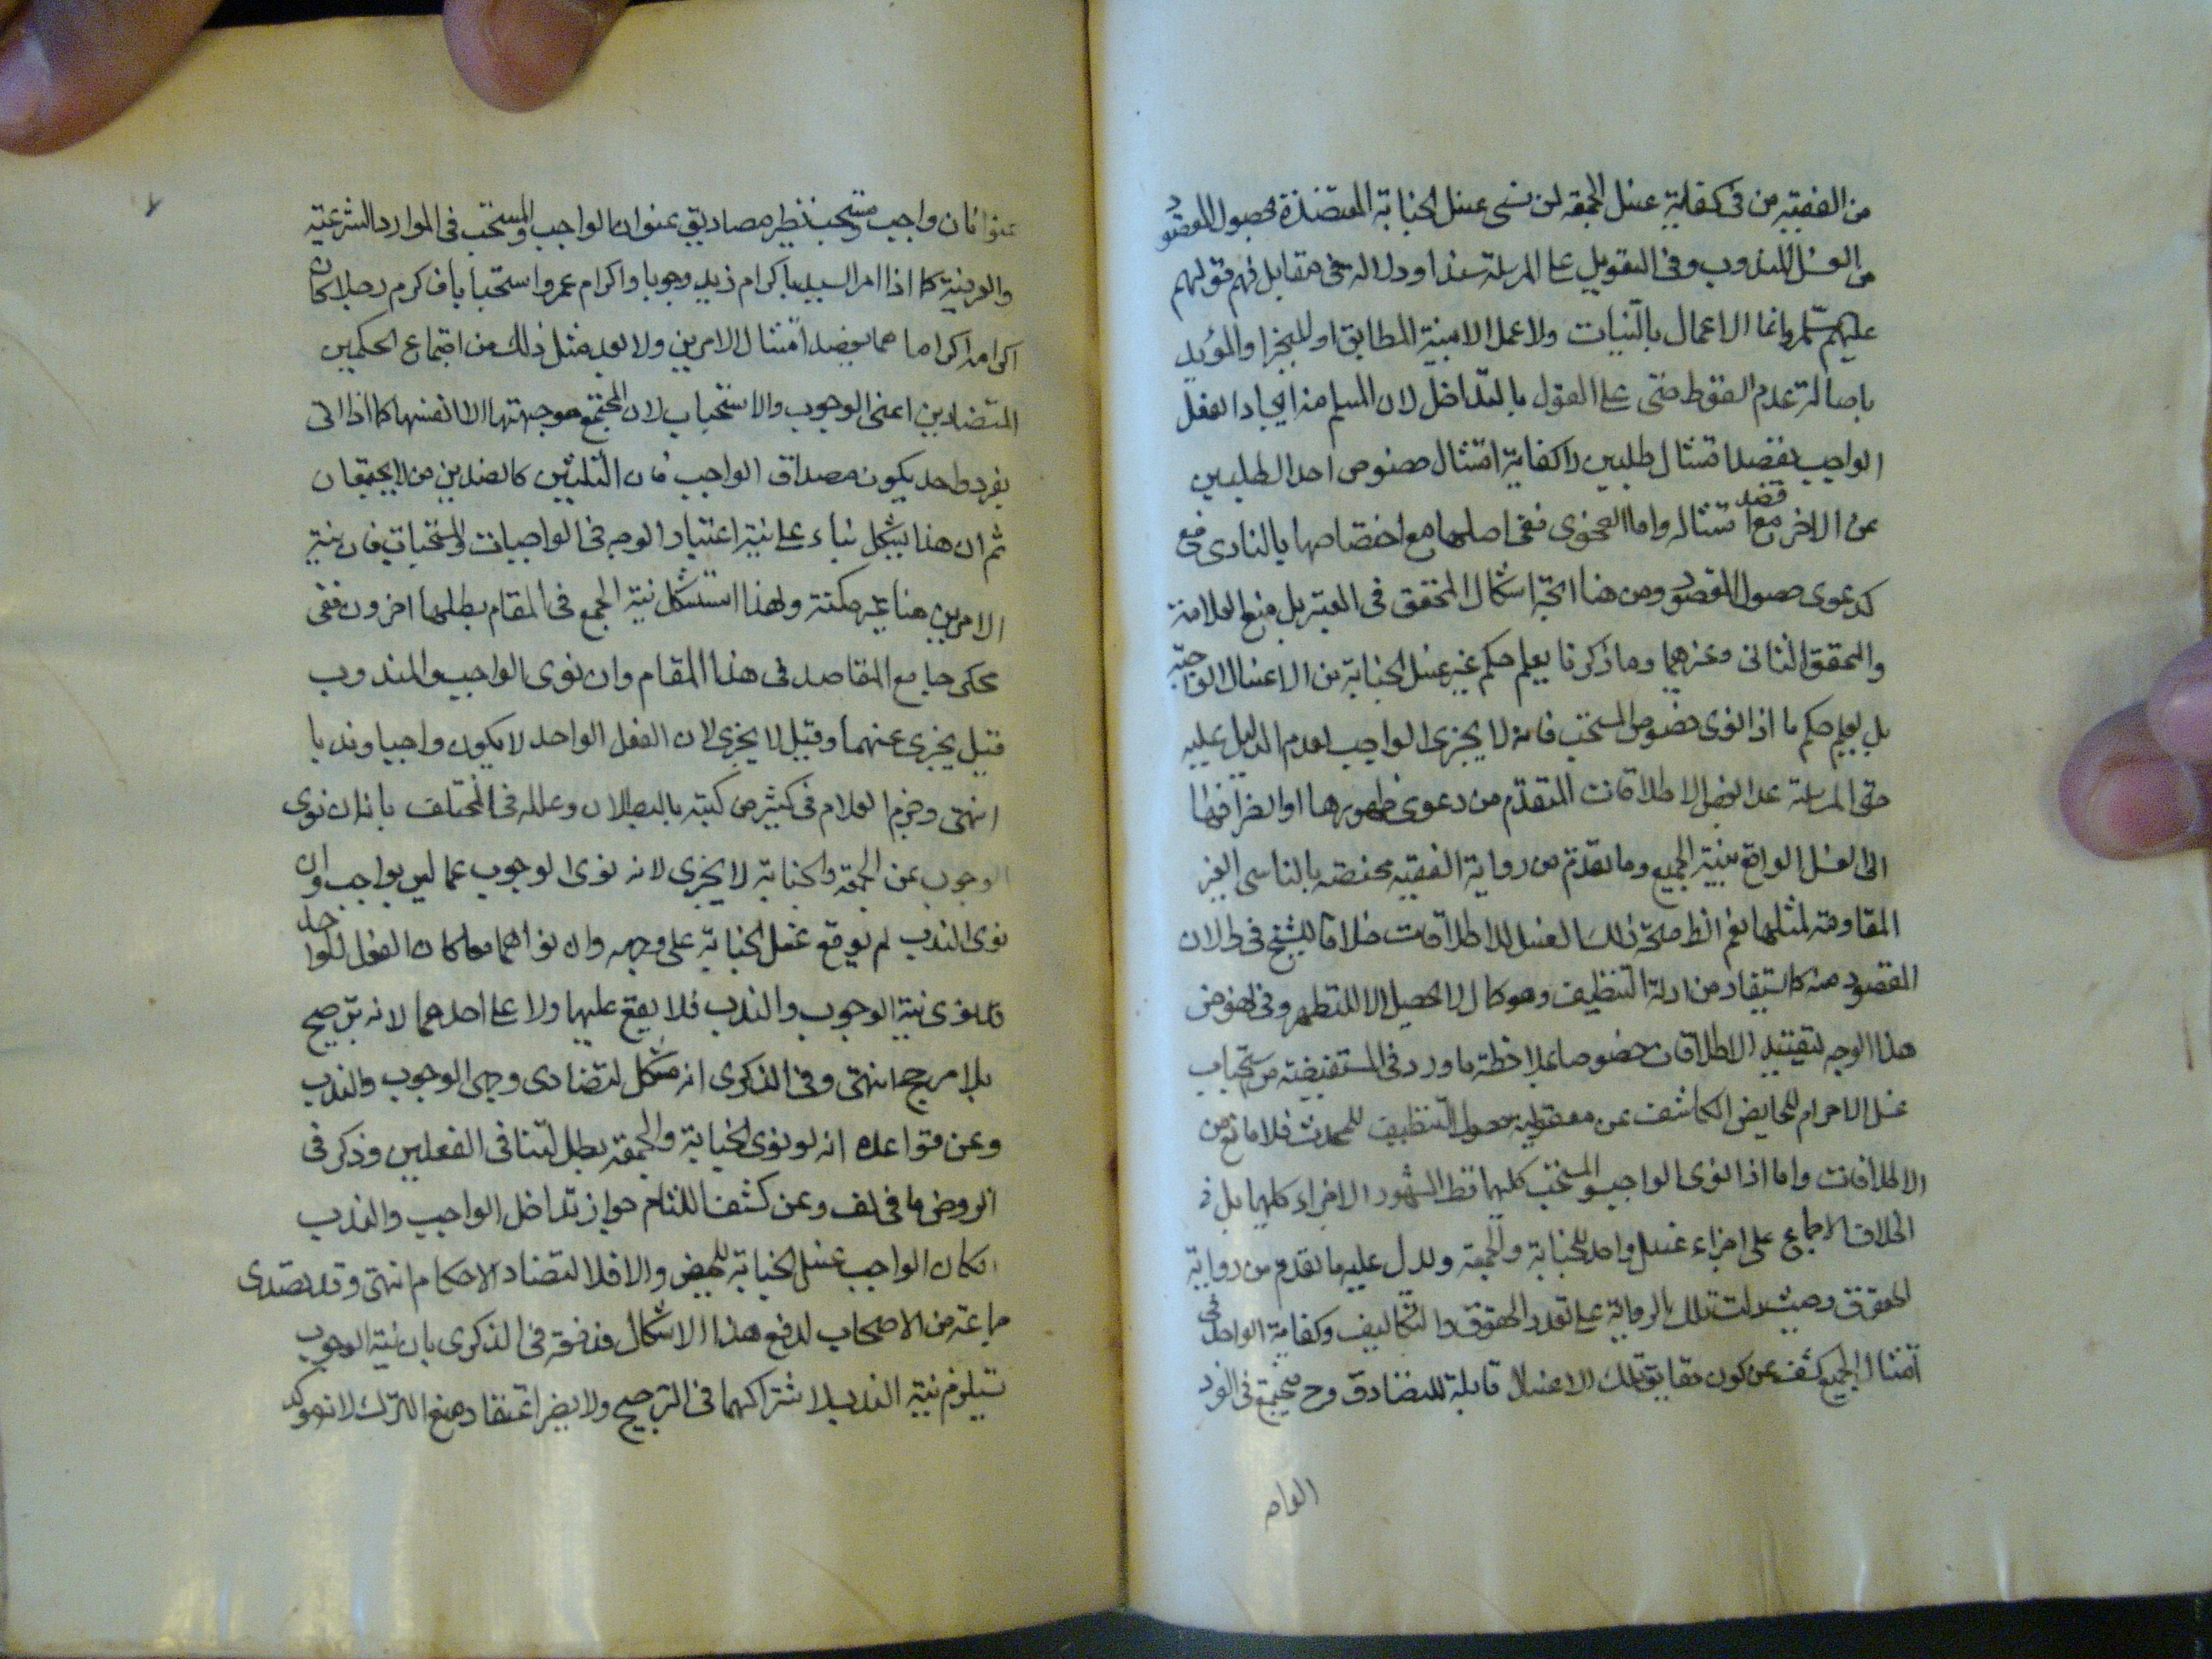 من الفقيه من فى كفاية غسل الجمعة لمن نسى غسل الجنابة المعتضدة بحصول المقصود
من الغسل المندوب وفى التعويل على المرسلة سندا ودلالة حتى فى مقابل قولهم
عليهم السلام وانما الاعمال بالنيات ولا عمل الا بنية المطابق او المنجبر او المؤيد
باصالة عدم السقوط حتى على القول بالتداخل لان المسلم منه ايجاد الفعل
الواجب بقصد امتثال طلبين لا كفاية امتثال خصوص احد الطلبين
عن الاخر مع قصد امتثاله واما الفحوى ففى اصلها مع اختصاصها بالناسى منع
كدعوى حصول المقصود ومن هنا اتجه اشكال المحقق فى المعتبر بل منع العلامة
والمحقق الثانى وغيرهما وما ذكرنا يعلم حكم غير غسل الجنابة من الاغسال الواجبة
بل يعلم حكم ما اذا نوى خصوص المستحب فانه لا يجزى الواجب لعدم الدليل عليه
حتى المرسلة عدا بعض الاطلاقات المتقدم من دعوى ظهورها او انصرافها
الى الغسل الواقع بنية الجميع وما تقدم من رواية الفقيه مختصة بالناسى الغير
المقاومة لمثلها نعم الظ صحة ذلك الغسل للاطلاقات خلافا للشيخ فى ف لان
المقصود منه كما يستفاد من ادلة التنظيف وهو كمال لا يحصل الا للمتطهر وفى نهوض
هذا الوجه لتقييد الاطلاقات خصوصا بملاحظة ما ورد فى المستفيضة من استحباب
غسل الاحرام للحايض الكاشف عن معقولية حصول التنظيف للمحدث فلا مانع من
الاطلاقات واما اذا نوى الواجب والمستحب كليهما فظ المشهور الاجزاء كليهما بل فى
الخلاف الاجماع على اجزاء غسل واحد للجنابة والجمعة ويدل عليه ما تقدم من رواية
الحقوق وحيث دلت تلك الرواية على تعدد الحقوق والتكاليف وكفاية الواحد فى
امتثال الجميع كشف عن كون حقايق تلك الاغسال قابلة للتصادق وح فيجتمع فى الفرد
الواحد
عنوانان واجب ومستحب نظير مصاديق عنوان الواجب والمستحب فى الموارد الشرعية
والعرفية كما اذا امر السيد باكرام زيد وجوبا واكرام عمرو استحبابا فاكرم رجلا كان
اكرامه اكرامهما بقصد امتثال الامرين ولا يعد مثل ذلك من اجتماع الحكمين
المتضادين اعنى الوجوب والاستحباب لان المجتمع هو جهتهما لا انفسهما كما اذا اتى
بفرد واحد يكون مصداق الواجب فان الكليين كالضدين من لا يجتمعان
ثم ان هذا يشكل بناء على نية اعتبار الوجه فى الواجبات والمستحبات فان نية
الامرين هنا غير ممكنة ولهذا استشكل نية الجمع فى المقام بطلها اخرون ففى
محكى جامع المقاصد فى هذا المقام وان نوى الواجب والمندوب
قيل يجزى عنهما وقيل لا يجزى لان الفعل الواحد لا يكون واجبا وندبا
انتهى وجزم العلام فى كثير من كتبه بالبطلان وعلله فى المختلف بانه ان نوى
الوجوب عن الجمعة والجنابة لا يجزى لانه نوى الوجوب عما ليس بواجب وان
نوى الندب لم يوقع غسل الجنابة على وجهه وان نواهما معا كان الفعل الواحد
قد نوى نية الوجوب والندب فلا يقع عليهما ولا على احدهما لانه ترجيح
بلا مرجح انتهى وفى الذكرى انه مشكل لتضادى وجهى الوجوب والندب
وعن قواعده انه لو نوى الجنابة والجمعة بطل لتنافى الفعلين وذكر فى
الروض ما فى لف وعن كشف اللثام جواز تداخل الواجب والندب
ان كان الواجب غسل الجنابة للحيض والا فلا لتضاد الاحكام انتهى وقد تصدى
جماعة من الاصحاب لدفع هذا الاشكال فدفعه فى الذكرى بان نية الوجوب
تستلزم نية الندب لاشتراكهما فى الترجيح ولا يضر اعتقاد منع الترك لانه مؤكد